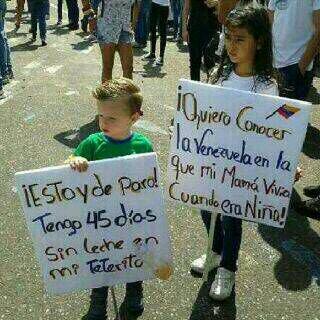 ¡ESToy de Paro!
Tengo 45 días
Sin Leche en
mi TeTeriTo
¡Quiero Conocer
la Venezuela en la
que mi Mamá Vivió
Cuando era Niña!